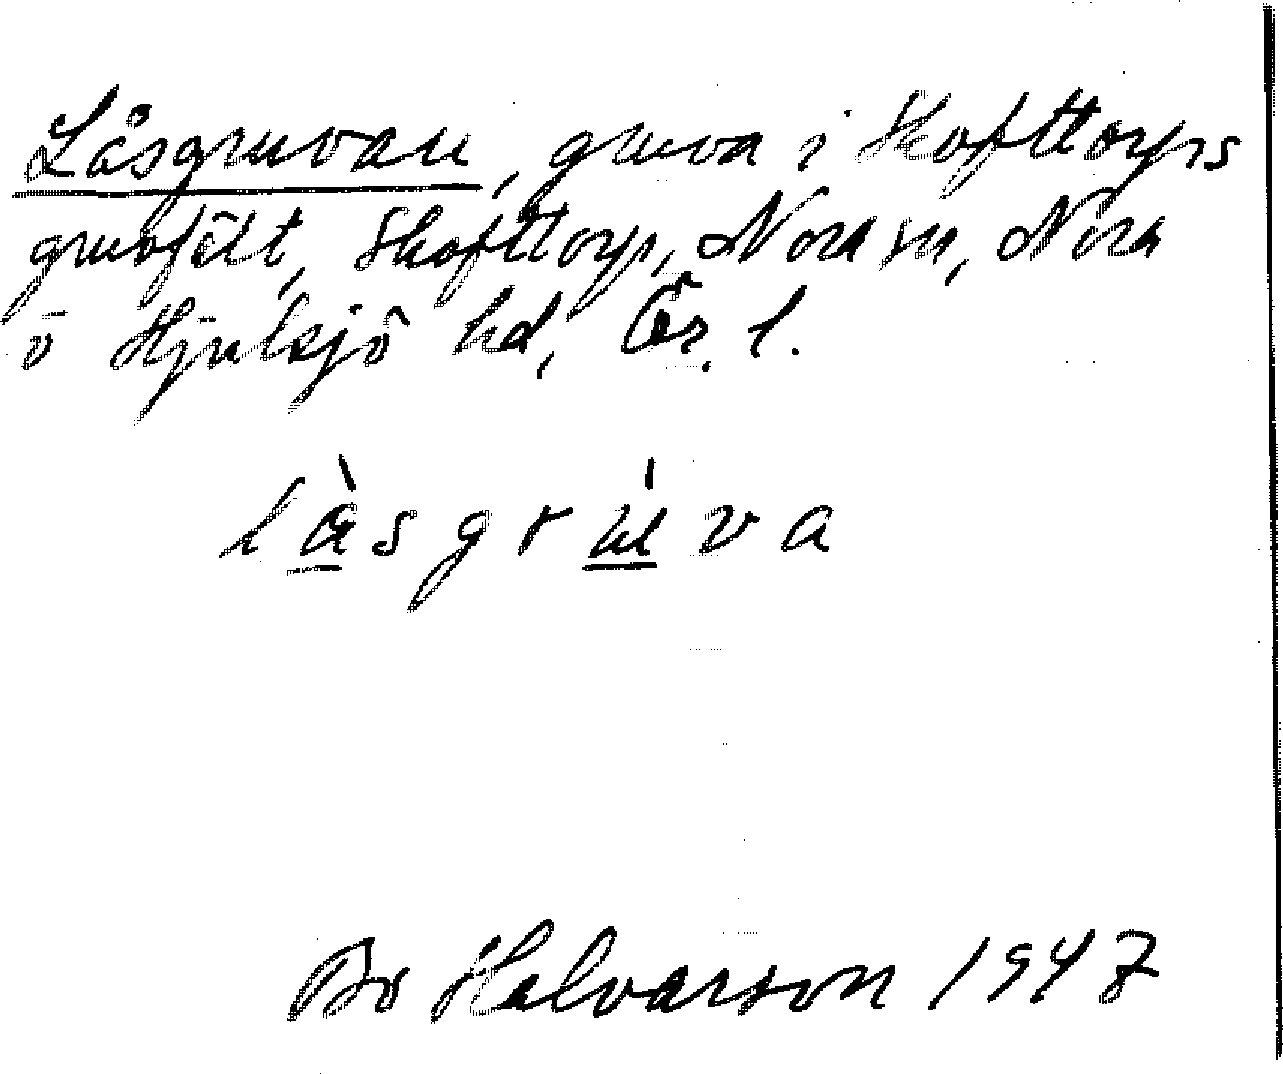 Låsgruvan, gruva i Skofttorps
gruvfält, Skofttorp, Nora sn, Nora
o Hjulsjö hd, Ör. l.
làsgrúva
Bo Halvarson 1947